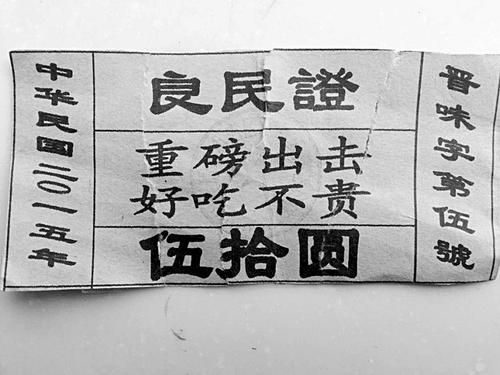 良民證
重磅出击
好吃不贵
伍拾圆
中华民国二〇一五年
晋味字第伍號